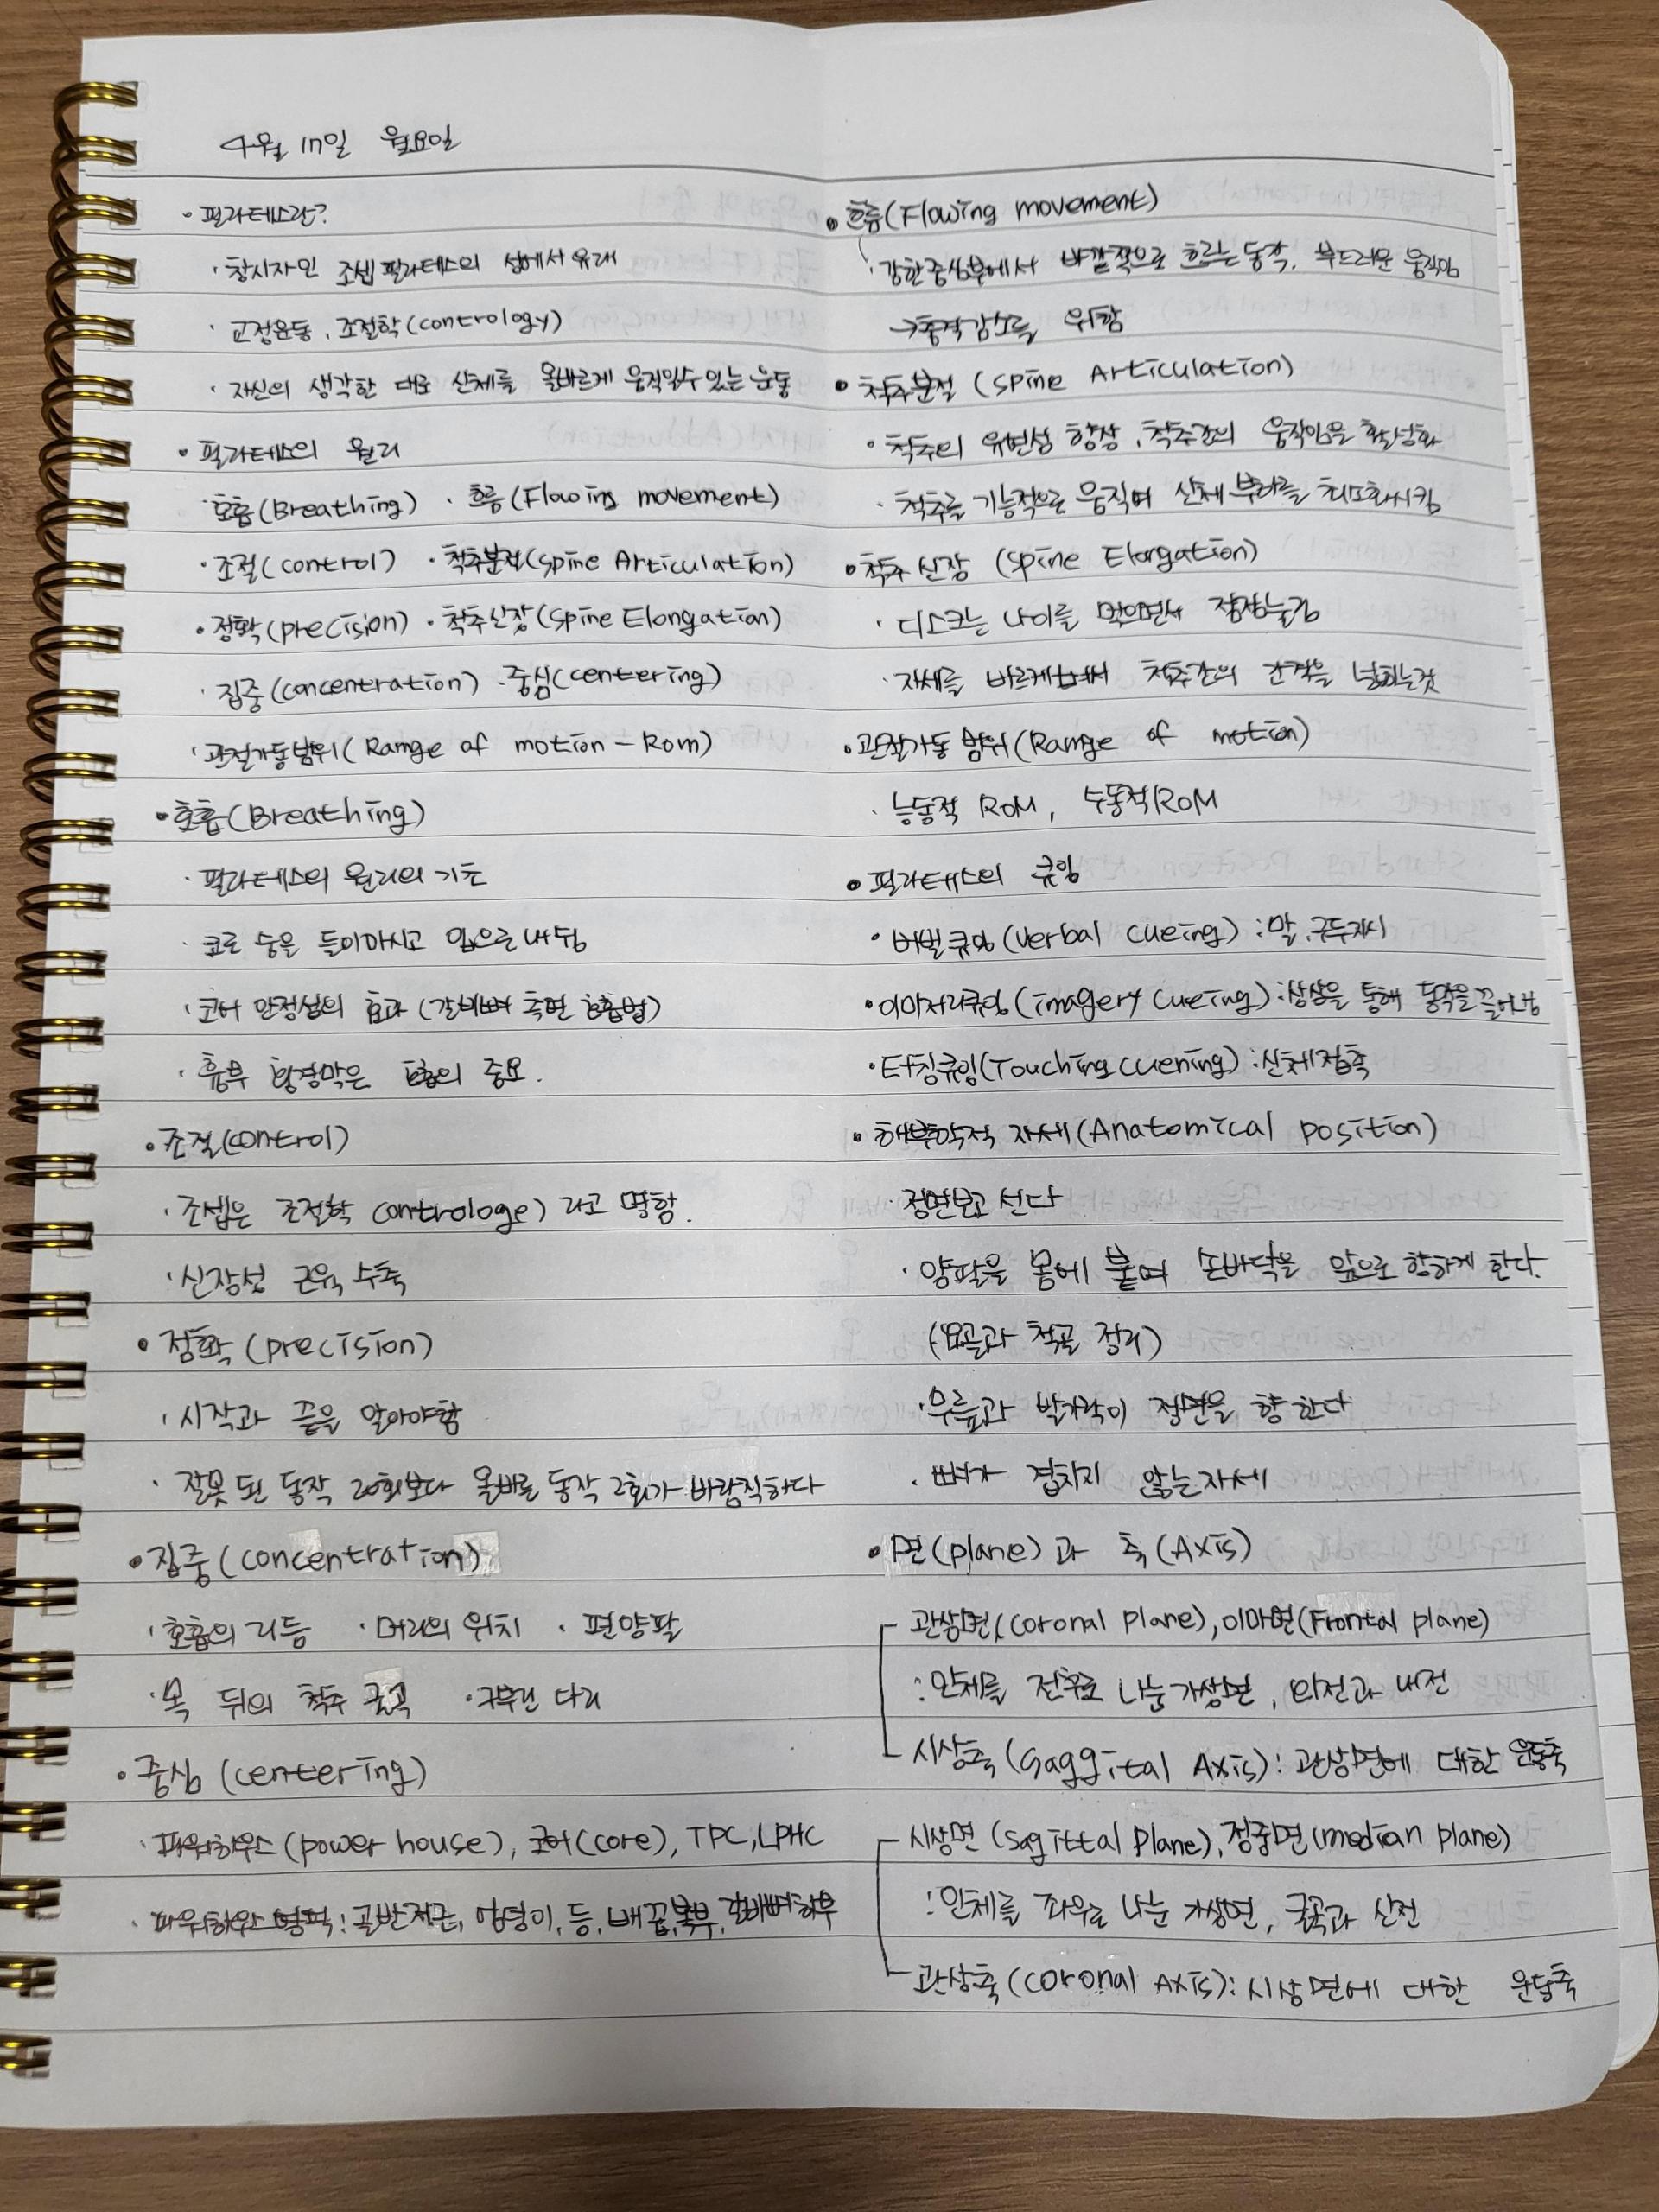 4월 17일 월요일
• 필라테스란?
· 창시자인 조셉 필라테스의 성에서 유래
· 교정운동, 조절학(contrology)
· 자신의 생각한 대로 신체를 올바르게 움직일수있는 운동
• 필라테스의 원리
· 호흡(Breathing) · 흐름(Flowing movement)
· 조절(control) · 척추분절(spine Articulation)
· 정확(precision) · 척추신장(spine Elongation)
· 집중(concentration) · 중심(centering)
· 관절가동범위(Range of motion - Rom)
• 호흡(Breathing)
· 필라테스의 원리의 기초
· 코로 숨을 들이마시고 입으로 내쉼
· 코어 안정성의 효과 (갈비뼈 측면 호흡법)
· 흉부 횡경막은 호흡의 중요.
• 조절(control)
· 조셉은 조절학 controloge) 라고 명함.
· 신장성 근육 수축
• 정확(precision)
· 시작과 끝을 알아야함
· 잘못 된 동작 20회보다 올바른 동작 2회가 바람직하다
• 집중(concentration)
· 호흡의 리듬 · 머리의 위치 · 편 양팔
· 목 뒤의 척추 굴곡 · 구부린 다리
• 중심 (centering)
· 파워하우스(power house), 코어(core), TPC, LPHC
· 파워하우스 영역: 골반저근, 엉덩이, 등, 배꼽, 복부, 갈비뼈하부
• 흐름(Flowing movement)
· 강한중심부에서 바깥쪽으로 흐르는 동작. 부드러운 움직임
→충격감소를 위함
• 척추분절 (spine Articulation)
· 척추의 유연성 향상, 척추간의 움직임을 활성화
· 척추를 기능적으로 움직여 신체 부하를 최소화시킴
• 척추 신장 (spine Elongation)
· 디스크는 나이를 먹으면서 점점눌림
· 자세를 바르게 척추간의 간격을 넓히는것
• 관절가동 범위(Range of motion)
· 능동적 ROM, 수동적ROM
• 필라테스의 큐잉
· 버벌큐잉(verbal cueing) : 말, 구두지시
· 이미저리큐잉(imagery cueing) : 상상을 통해 동작을 끌어냄
· 터칭큐잉(Touching cuening) : 신체접촉
• 해부학적 자세(Anatomical position)
· 정면보고 선다
· 양팔을 몸에 붙여 손바닥을 앞으로 향하게 한다.
(요골과 척골 정리)
· 무릎과 발가락이 정면을 향 한다
· 뼈가 겹치지 않는자세
• 면(plane) 과 축(Axis)
관상면(coronal plane), 이마면(Frontal plane)
: 인체를 전후로 나눈 가상면, 외전과 내전
시상축(Saggital Axis) : 관상면에 대한 운동축
시상면 (sagittal plane), 정중면(median plane)
: 인체를 좌우로 나눈 가상면, 굴곡과 신전
관상축(coronal Axis) : 시상면에 대한 운동축